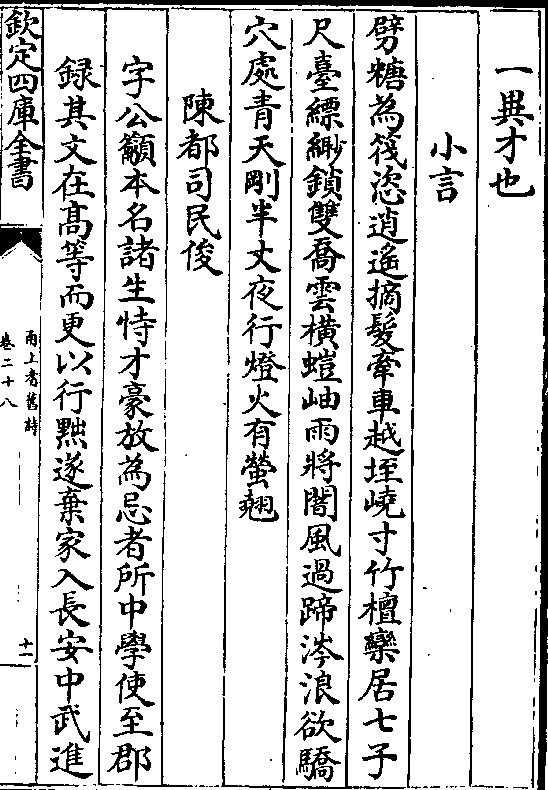 一異才也
小言
劈糖為筏恣逍遙摘髮牽車越垤嶢寸竹檀欒居七子
尺臺縹緲鎖雙喬雲橫螘岫雨將闇風過蹄涔浪欲驕
穴處青天剛半丈夜行燈火有螢翹
陳都司民俊
字公籲本名諸生恃才豪放為忌者所中學使至郡
録其文在髙等而更以行黜遂棄家入長安中武進
欽定四庫全書
甬上耆舊詩
卷二十八
十一